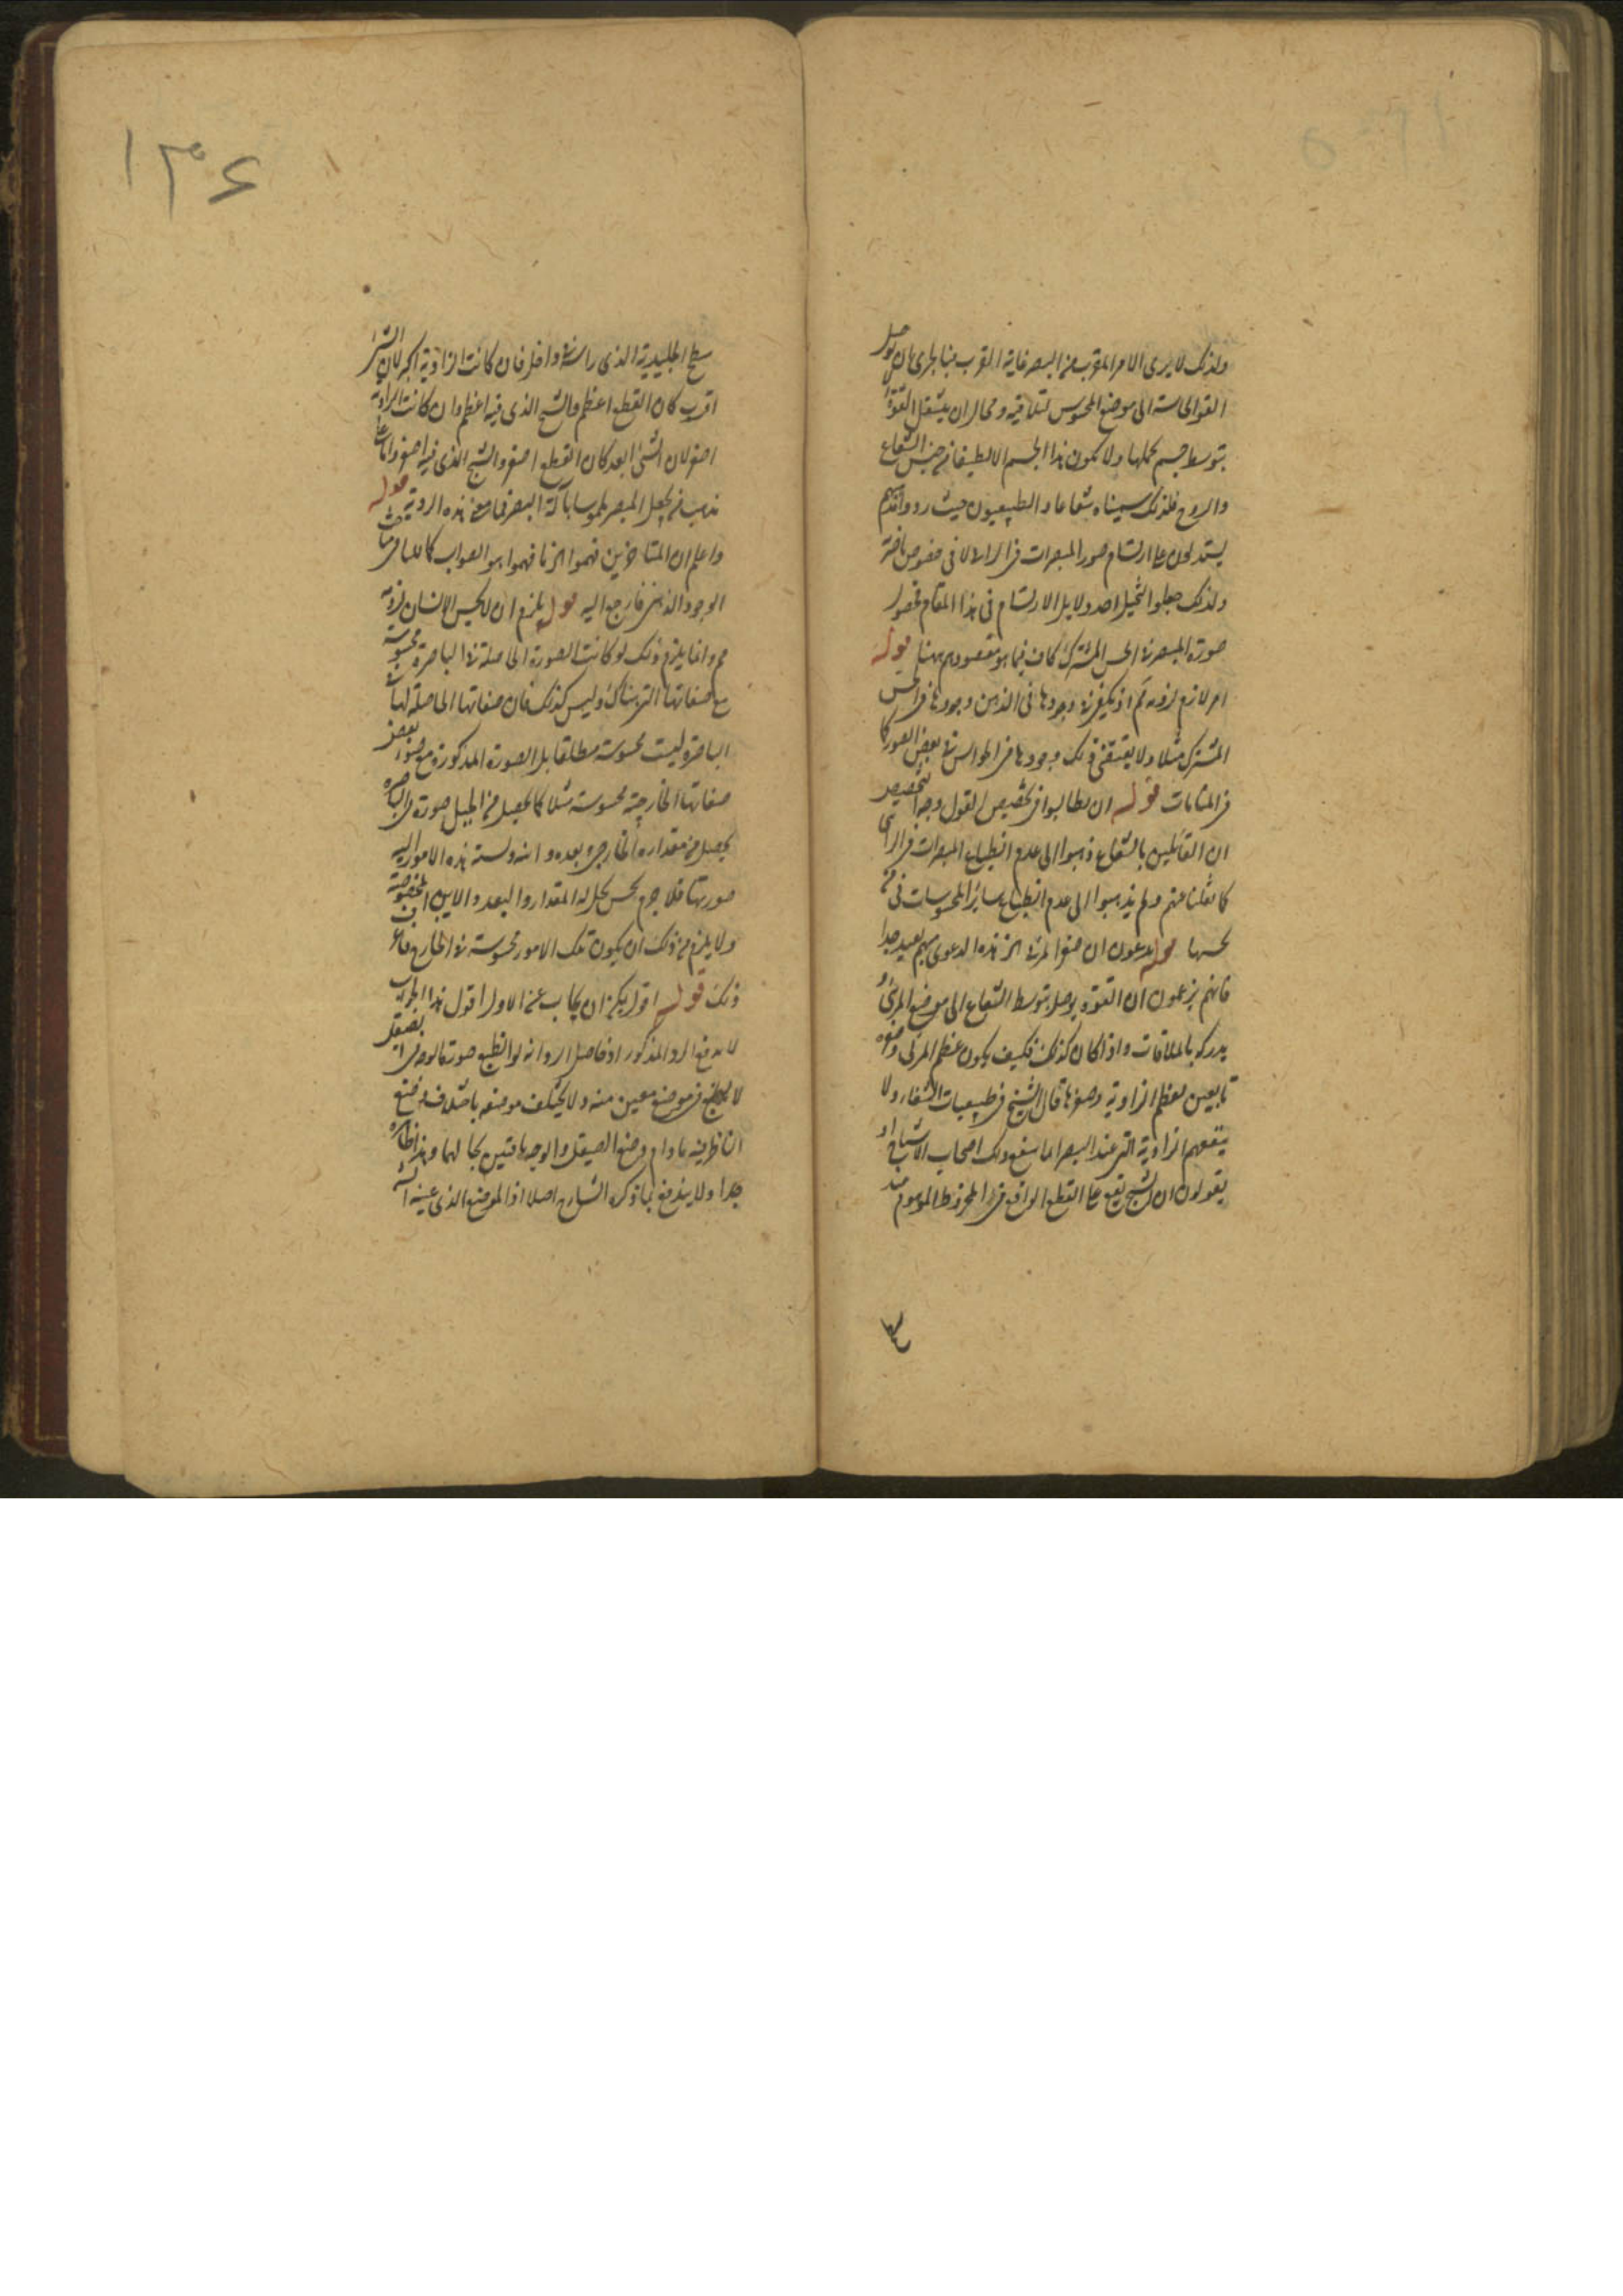 ولذلك لا يرى الامر المقرب من البصر غاية القرب فبالحرى ان يوصل
القوة الحاسة الى موضع المحسوس لتلاقيه ومحال ان ينتقل القوة
بتوسط جسم يحملها ولا يكون هذا الجسم الا لطيفا من جنس الشعاع
والروح فلذلك سميناه شعاعا والطبيعيون حيث ردوا
يستدلون على ارتسام صور المبصرات فى الرائى لا فى خصوص باصرة
ولذلك جعلوا التخيل احد دلايل الارتسام فى هذا المقام فحصول
صورة المبصر فى الحس المشترك كاف فيما هو مقصودهم ههنا قوله
امر لازم لزوم تم اذ يكفى فى وجودها فى الذهن وجودها فى الحس
المشترك مثلا ولا يقتضى ذلك وجودها فى الحواس فى بعض الصور كما
فى المنامات قوله ان يطالبوا فى تخصيص القول وجه التخصيص
ان القائلين بالشعاع ذهبوا الى عدم انطباع المبصرات فى الرائى
كما نقلنا عنهم ولم يذهبوا الى عدم انطباع سائر المحسوسات فى
يحسها قوله يدعون ان صغر المرئى الخ هذه الدعوى منهم بعيد جدا
فانهم يزعمون ان القوة يوصل بتوسط الشعاع الى موضع المرئى و
يدركه بالملاقات واذا كان كذلك فكيف يكون عظم المرئى وصغره
تابعين لعظم الزاوية وصغرها قال الشيخ فى طبيعيات الشفاء ولا
ينفعهم الزاوية التى عند البصر انما ينفع ذلك اصحاب الاشباح اذ
يقولون ان الشبح يقع على القطع الواقع فى المخروط الموهوم عند
سطح
سطح الجليدية الذى راسه فى داخل فان كانت الزاوية اكبر لان الشئ
اقرب كان القطع اعظم والشبح الذى فيه اعظم وان كانت الزاوية
اصغر لان الشئ ابعد كان القطع اصغر والشبح الذى فيه اصغر واما على
مذهب من يجعل المبصر ملموسا بآلة البصر فما معنى هذه الزاوية قوله
واعلم ان المتاخرين فهموا الخ ما فهموا هو الصواب كما سلف فى مباحث
الوجود الذهنى فارجع اليه قوله يلزم ان لا يحس الانسان لزومه
مم وانما يلزم ذلك لو كانت الصورة الحاصلة فى الباصرة محسوسة
مع صفاتها التى هناك وليس كذلك فان صفاتها الحاصلة لها فى
الباصرة ليست محسوسة مطلقا بل الصورة المذكورة مع بعض
صفاتها الخارجية محسوسة مثلا كما يحصل من الجبل صورة فى الباصرة
يحصل من مقداره الخارجى وبعده واينه ونسبة هذه الامور اليه
صورتها فلا جرم يحس بحل له المقدار والبعد والاين المخصوصة
ولا يلزم من ذلك ان يكون تلك الامور محسوسة فى الخارج فاعرف
ذلك قوله اقول يمكن ان يجاب عن الاول اقول هذا الجواب
لا يدفع الرد المذكور اذ حاصل الرد انه لو انطبع صورة الوجه فى الصيقل
لا نطبع فى موضع معين منه ولا يختلف موضعه باختلاف وضع
الناظر فيه ما دام وضع الصيقل والوجه باقيين بحالهما وهذا ظاهر
جدا ولا يندفع بما ذكره الشارح اصلا اذ الموضع الذى عينه
١٣۶